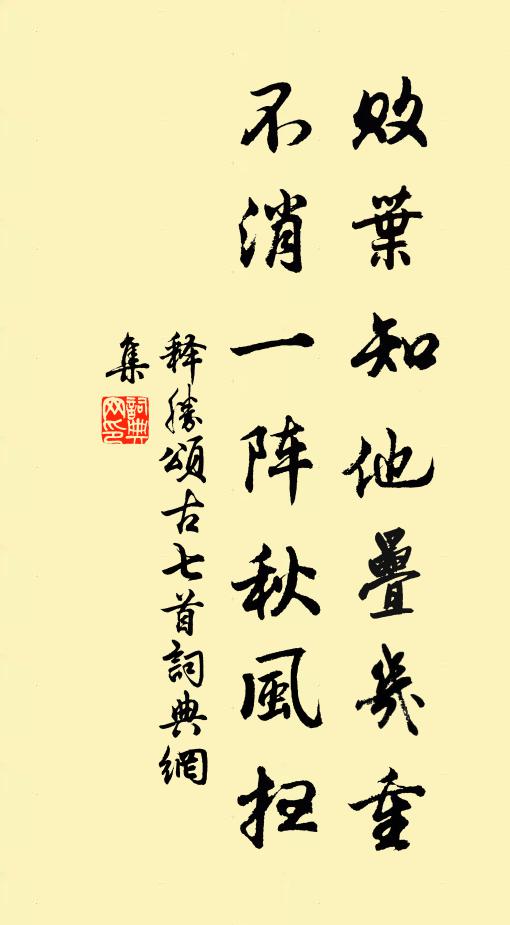 败葉知他疊幾重
不消一阵秋風扫
释勝頌古七首詞典網
集
詞典
网印